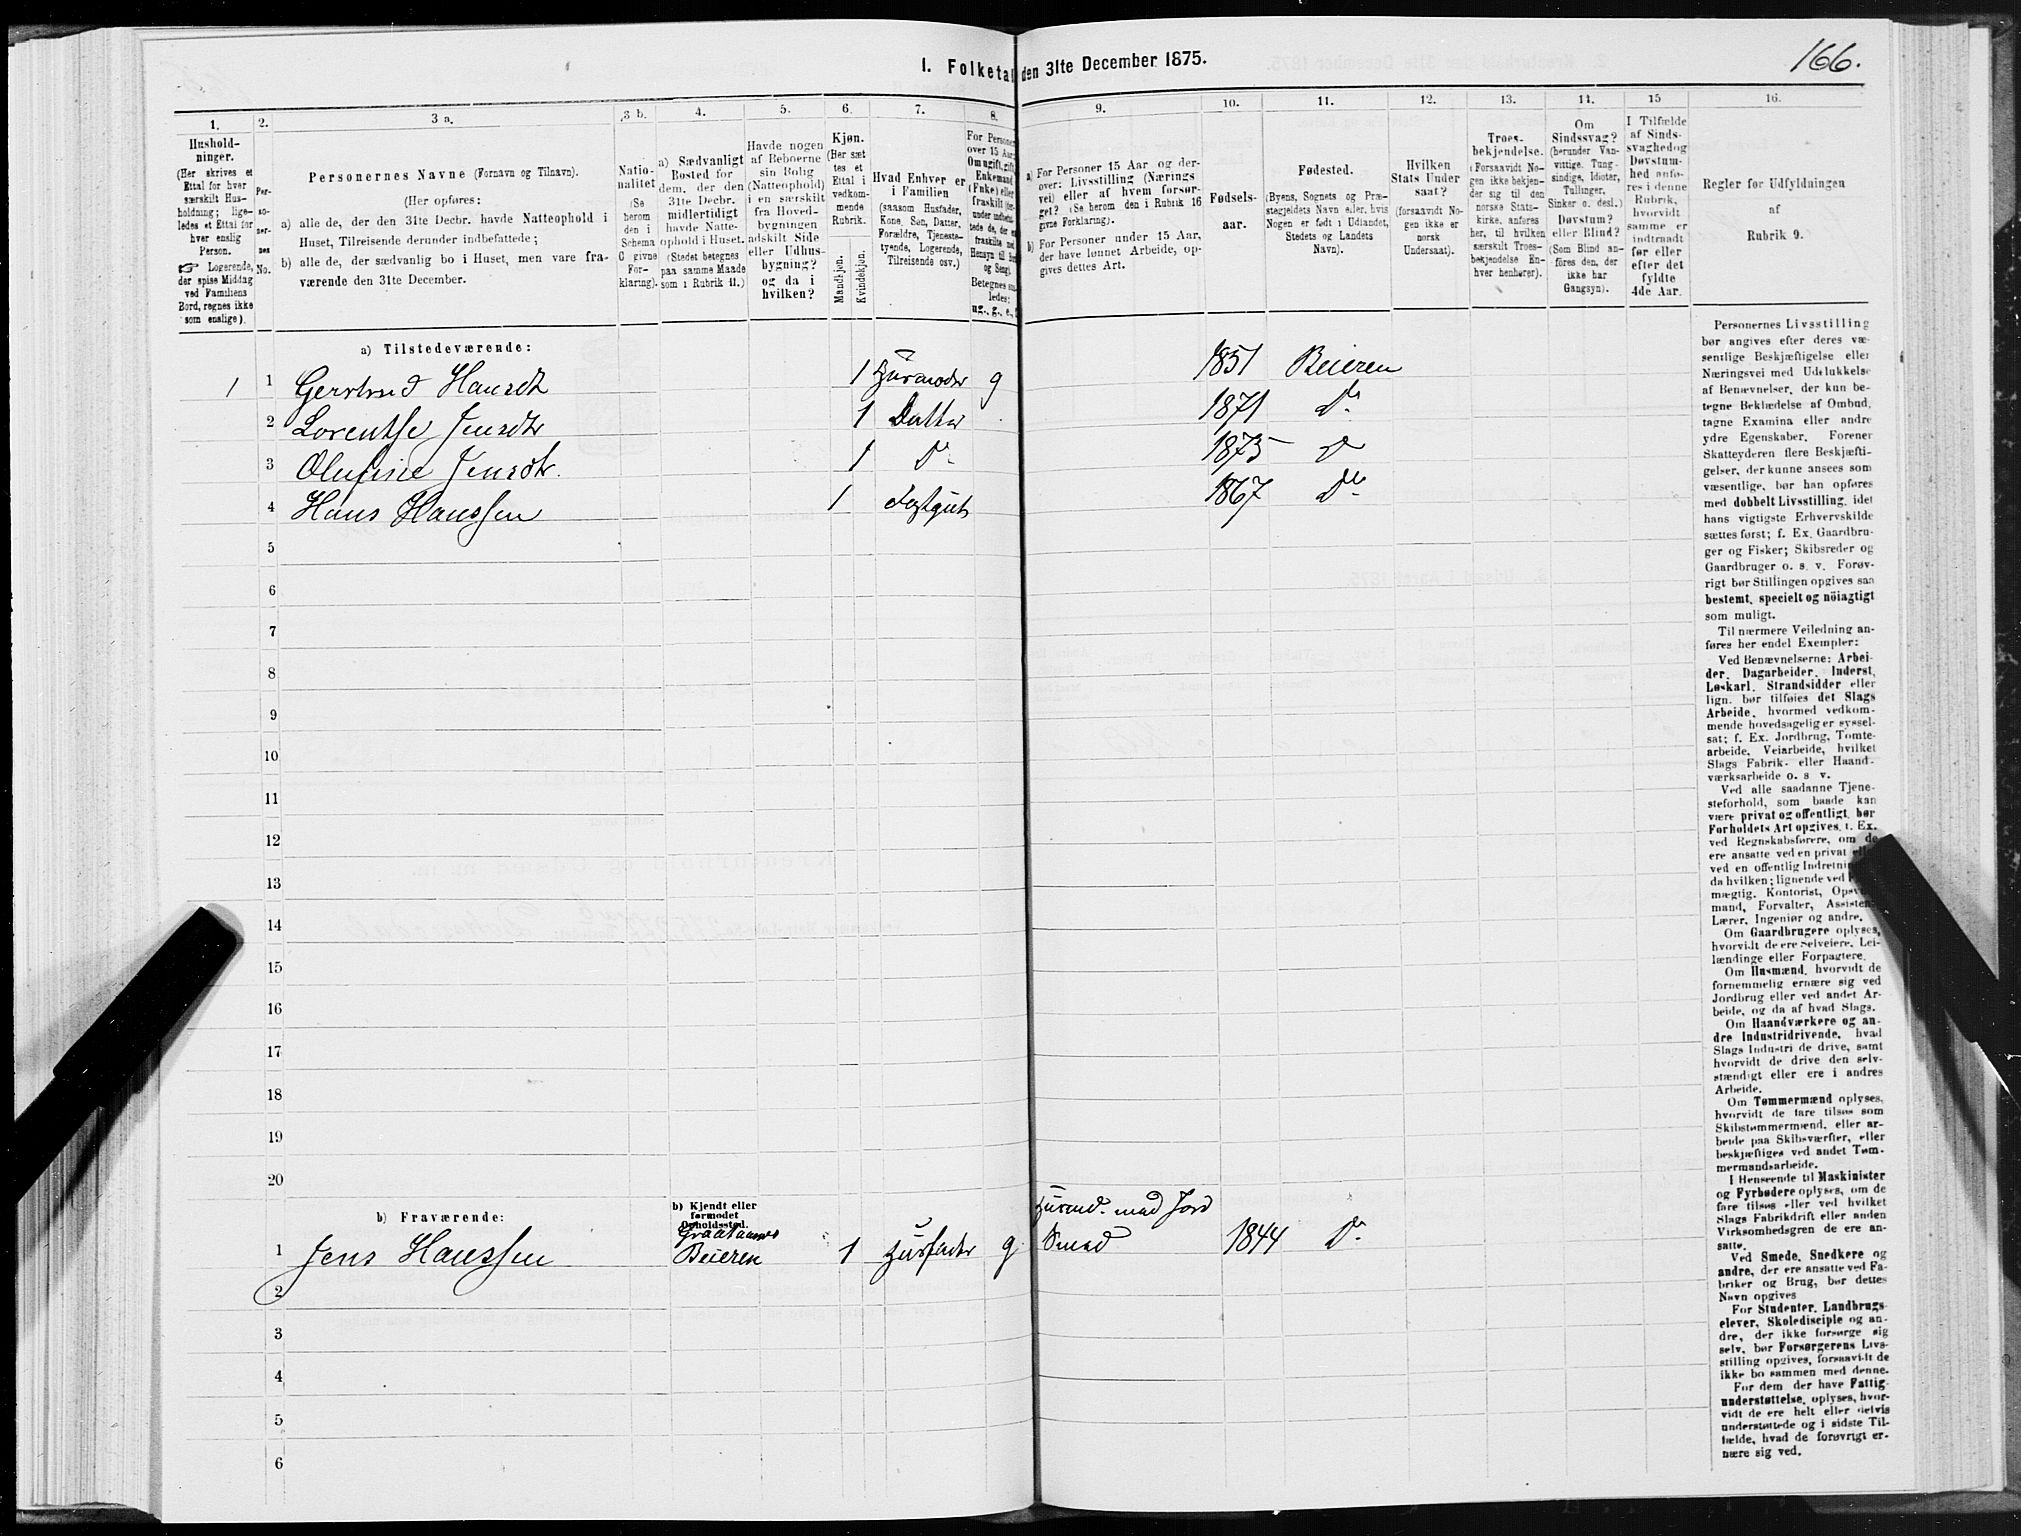 166.
I. Folketal den 31te December 1875.
1. 2. 3 a. 3 b. 4. 5. 6. 7. 8. 9. 10. 11. 12. 13. 14. 15 16.
Hushold-
ninger.
(Her skrives et
Ettal for hver
særskilt Hus-
holdning; lige-
ledes et Ettal for
hver enslig
Person.
☞ Logerende,
der spise Middag
ved Familiens
Bord, regnes ikke
som enslige).
Per-
so-
ner-
nes
No.
Personernes Navne (Fornavn og Tilnavn).
(Her opføres:
a) alle de, der den 31te Decbr. havde Natteophold i
Huset, Tilreisende derunder indbefattede;
b) alle de, der sædvanlig bo i Huset, men vare fra-
værende den 31te December.
Natio-
nalitet
(Se
herom
den i
Schema
C givne
For-
klaring).
a) Sædvanligt
Bosted for
dem, der den
31te Decbr.
midlertidigt
havde Natte-
ophold i Huset.
(Stedet betegnes
paa samme Maade
som i Rubrik 11.)
Havde nogen
af Beboerne
sin Bolig
(Natteophold)
i en særskilt
fra Hoved-
bygningen
adskilt Side
eller Udhus-
bygning?
og da i
hvilken?
Kjøn.
(Her sæt
tes et
Ettal i
vedkom-
mende
Rubrik.
Mandkjøn.
Kvindekjøn.
Hvad Enhver er
i Familien
(saasom Husfader,
Kone, Søn, Datter,
Forældre, Tjeneste-
tyende, Logerende,
Tilreisende osv.)
For Personer
over 15 Aar:
Om ugift, gift,
Enkemand
(Enke) eller
fraskilt
og Seng).
Betegnes saa-
ledes:
ug., g., e.,
a) For Personer 15 Aar og der-
over: Livsstilling (Nærings
vei) eller af hvem forsør-
get? (Se herom den i Rubrik 16
givne Forklaring).
b) For Personer under 15 Aar,
der have lønnet Arbeide, op-
gives dettes Art.
Fødsels-
aar.
Fødested.
(Byens, Sognets og Præ-
stegjeldets Navn eller, hvis
Nogen er født i Udlandet,
Stedets og Landets
Navn).
Hvilken
Stats Under
saat?
(forsaavidt No-
gen ikke er
norsk
Undersaat).
Troes-
bekjendelse.
(Forsaavidt No-
gen ikke bekjen-
der sig til den
norske Stats-
kirke, anføres
her, til hvilken
særskilt Troes-
bekjendelse En-
hver henhører).
Om
Sindssvag?
(herunder Van-
vittige, Tung-
sindige, Idioter,
Tullinger,
Sinker o. desl.)
Døvstum?
eller Blind?
(Som Blind an-
føres den, der
ikke har
Gangsyn).
I Tilfælde
af Sinds-
svaghed og
Døvstum-
hed anfø-
res i denne
Rubrik,
hvorvidt
samme er
indtraadt
før eller
efter det
fyldte
4de Aar.
Regler for Udfyldningen
af
Rubrik 9.
a) Tilstedeværende:
1 1 Gertrud Hansdtr 1 Husmoder g 1851 Beieren
2 Lorentse Jensdtr 1 Datter 1871 Do
3 Olufine Jensdtr. 1 Do 1875 Do
4 Hans Hanssen 1 1867 Do
5
6
7
8
9
10
11
12
13
14
15
16
17
18
19
20
b) Fraværende:
b) Kjendt eller
formodet
Opholdssted.
Husmd. med Jord
1 Jens Hanssen Beieren 1 Husfader g Smed 1844 Do
2
3
4
5
6
Personernes Livsstilling
bør angives efter deres væ-
sentlige Beskjæftigelse eller
Næringsvei med Udelukkelse
af Benævnelser, der kun be-
tegne Beklædelse af Ombud,
tagne Examina eller andre
ydre Egenskaber. Forener
Skatteyderen flere Beskjæfti-
gelser, der kunne ansees som
væsentlige, bør han opføres
med dobbelt Livsstilling, idet
hans vigtigste Erhvervskilde
sættes først; f. Ex. Gaardbru-
ger og Fisker; Skibsreder og
Gaardbruger o. s. v. Forøv-
rigt bør Stillingen opgives saa
bestemt, specielt og nöiagtigt
som muligt.
Til nærmere Veiledning an-
føres her endel Exempler:
Ved Benævnelserne: Arbei-
der, Dagarbeider, Inderst,
Løskarl, Strandsidder eller
lign. bør tilføies det Slags
Arbeide, hvormed vedkom-
mende hovedsagelig er syssel-
sat; f. Ex. Jordbrug, Tomte-
arbeide, Veiarbeide, hvilket
Slags Fabrik- eller Haand-
værksarbeide o. s v.
Ved alle saadanne Tjene-
steforhold, som baade kan
være privat og offentligt, bør
Forholdets Art opgives, f. Ex.
ved Regnskabsførere, om de
ere ansatte ved en privat
ved en offentlig Indretning
da hvilken; lignende ved
mægtig, Kontorist, Opsyns-
mand, Forvalter, Assistent,
Lærer, Ingeniør og andre.
Om Gaardbrugere oplyses,
hvorvidt de ere Selveiere, Lei-
lændinge eller Forpagtere.
Om Husmænd, hvorvidt de
fornemmelig ernære sig ved
Jordbrug eller ved andet Ar-
beide, og da af hvad Slags.
Om Haandværkere og an-
dre Industridrivende, hvad
Slags Industri de drive, samt
hvorvidt de drive den selv-
stændigt eller ere i andres
Arbeide.
Om Tømmermænd oplyses,
hvorvidt de fare tilsøs som
Skibstømmermænd, eller ar-
beide paa Skibsværfter, eller
beskjæftiges ved andet Tøm-
mermandsarbeide.
I Henseende til Maskinister
og Fyrbødere oplyses, om de
fare tilsøs eller ved hvilket
Slags Fabrikdrift eller anden
Virksomhedsgren de ere an-
satte.
Ved Smede, Snedkere og
andre, der ere ansatte ved Fa-
briker og Brug, bør dettes
Navn opgives
For Studenter, Landbrugs-
elever, Skoledisciple og an-
dre, der ikke forsørge sig
selv, bør Forsørgerens Livs-
stilling opgives, forsaavidt de
ikke bo sammen med denne.
For dem der have Fattig-
understøttelse, oplyses, hvor-
vidt de ere helt eller delvis
understøttede og i sidste Til-
fælde, hvad de forøvrigt er-
nære sig ved.